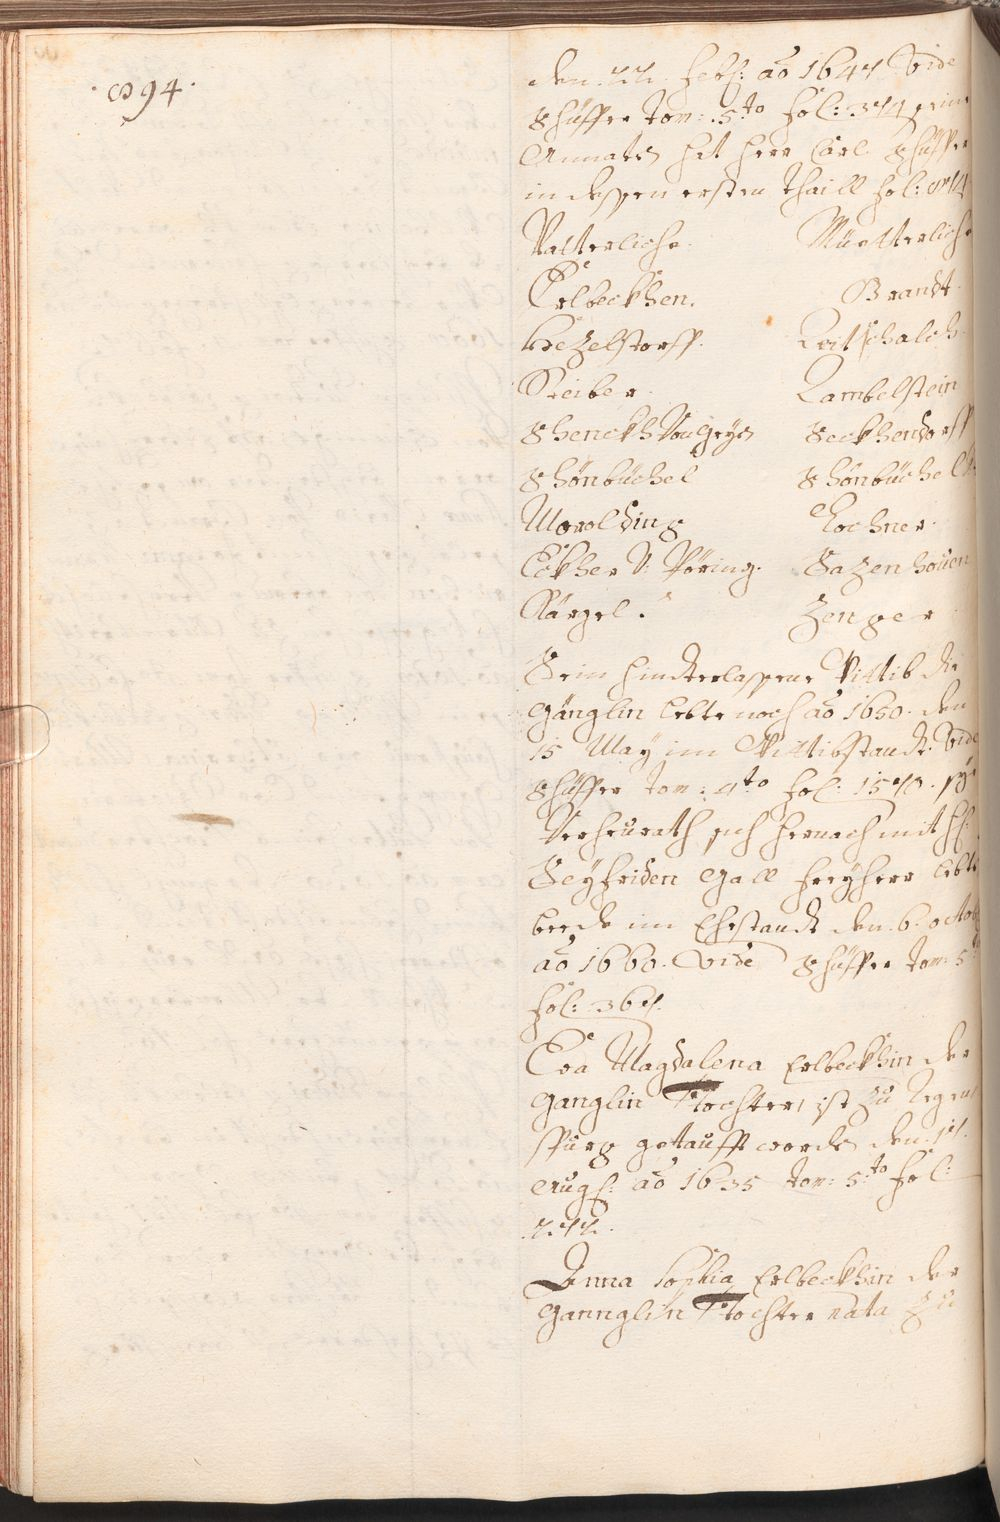 ·894·
den 22. Feb: ao 1647 Vide
Schüffer tom: 5to fol: 374 seine
Annates hat herr Carl Schüffer
in dessen ersten Thaill fol:
Vatterliche. Müetterliche
Erlbeckhen. Brandt.
Hezelstorff. Rotschalch.
Steiber. Lambelstein
Schenckh Von Geyrs Seckhendorff
Schönbüchel Schönbüchel
Morolding Lochner.
Eckher V: Pöring. Sazenhouen
Kärgel. Zenger
Sein hindterlassene Wittib die
Gänglin lebte noch ao 1650. den
15 May im Wittibstandt. Vide
Schüffer tom: 4to fol: 1570. sye
Verheurath sich hernach mit H:
Seyfriden Gall Freyherr lebte
beede im Ehestandt den 6. octob
ao 1660. Vide Schüffer tom: 5to
fol: 367.
Eva Magdalena Erlbeckhin der
Ganglin Tochter, ist zu Regen
spurg getaufft worden den 17.
Aug: ao 1635 tom: 5to fol:
272.
Anna Sophia Erlbeckhin der
Gannglin Tochter nata zu